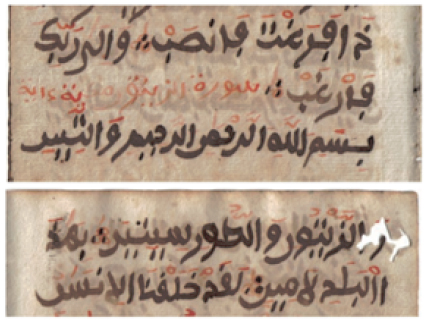 ذا فرغت فانصب والى ربك
فارغب سورة الزيتون
بسم الله الرحمن الرحيم والتين
والزيتون وطور سينين وهذ
ا البلد الامين لقد خلقنا الانسن